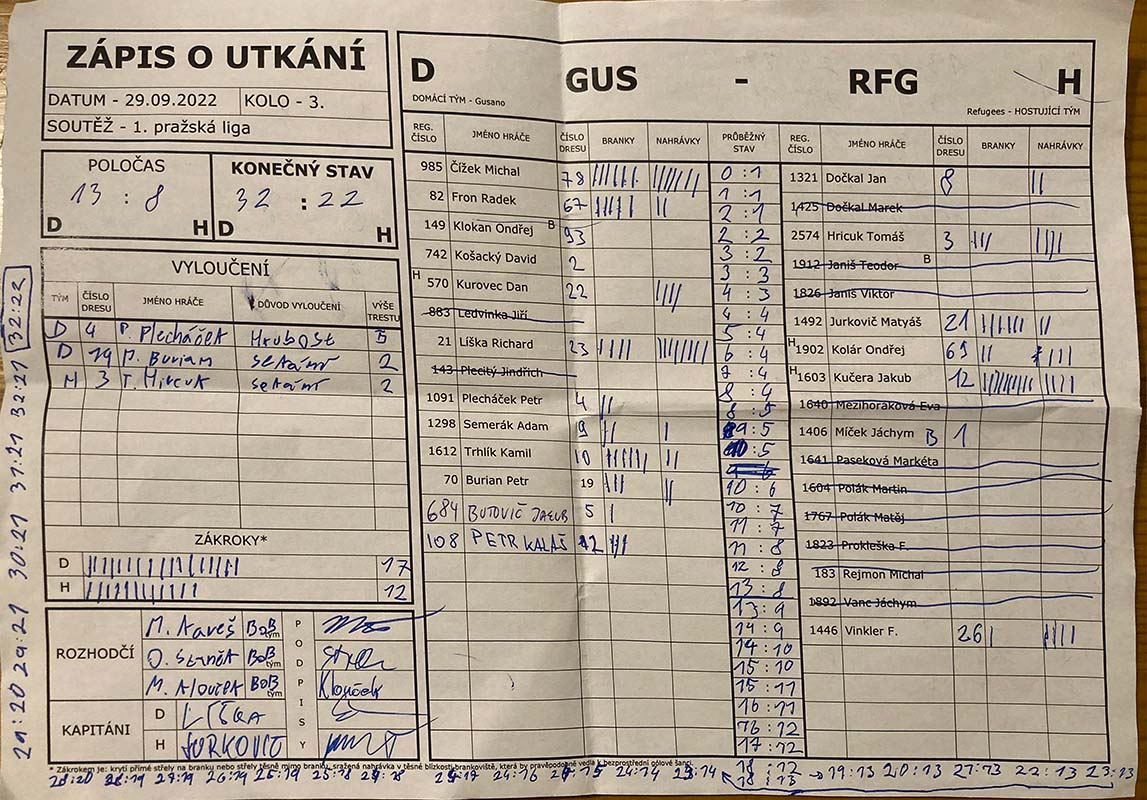 ZÁPIS O UTKÁNÍ
DATUM - 29.09.2022 KOLO - 3.
SOUTĚŽ - 1. pražská liga
POLOČAS
13 : 8
D H
KONEČNÝ STAV
32 : 22
D H
VYLOUČENÍ
TÝM ČÍSLO DRESU JMÉNO HRÁČE DŮVOD VYLOUČENÍ VÝŠE TRESTU
D 4 P. Plecháček Hrubost 5
D 19 P. Burian sekání 2
H 3 T. Hricuk sekání 2
ZÁKROKY*
D 17
H 12
ROZHODČÍ
M. Kareš BoB tým
BoB tým
M. Klouček BoB tým Klouček
PODPISY
KAPITÁNI
D LÍŠKA
H JURKOVIČ
D GUS - RFG H
DOMÁCÍ TÝM - Gusano Refugees - HOSTUJÍCÍ TÝM
REG. ČÍSLO JMÉNO HRÁČE ČÍSLO DRESU BRANKY NAHRÁVKY PRŮBĚŽNÝ STAV REG. ČÍSLO JMÉNO HRÁČE ČÍSLO DRESU BRANKY NAHRÁVKY
985 Čížek Michal 78
82 Fron Radek 67
149 Klokan Ondřej B 93
742 Košacký David 2
H 570 Kurovec Dan 22
883 Ledvinka Jiří
21 Líška Richard 23
143 Plecitý Jindřich
1091 Plecháček Petr 4
1298 Semerák Adam 9
1612 Trhlík Kamil 10
70 Burian Petr 19
684 BUTOVIČ JAKUB 5
108 PETR KALAŠ 12
0 : 1
1 : 1
2 : 1
2 : 2
3 : 2
3 : 3
4 : 3
4 : 4
5 : 4
6 : 4
7 : 4
8 : 4
8 : 5
9 : 5
10 : 5
9 : 6
10 : 6
10 : 7
11 : 7
11 : 8
12 : 8
13 : 8
13 : 9
14 : 9
14 : 10
15 : 10
15 : 11
16 : 11
16 : 12
17 : 12
18 : 12
18 : 13
1321 Dočkal Jan 8
1425 Dočkal Marek
2574 Hricuk Tomáš 3
1912 Janiš Teodor B
1826 Janis Viktor
1492 Jurkovič Matyáš 21
H 1902 Kolár Ondřej 69
H 1603 Kučera Jakub 12
1640 Mezihoráková Eva
1406 Míček Jáchym B 1
1641 Paseková Markéta
1604 Polák Martin
1767 Polák Matěj
1823 Prokleška F.
183 Rejmon Michal
1892 Vanc Jáchym
1446 Vinkler F. 26
* Zákrokem je: krytí přímé střely na branku nebo střely těsně mimo branku, sražená nahrávka v těsné blízkosti brankoviště, která by pravděpodobně vedla k bezprostřední gólové šanci.
19:13 20:13 21:13 22:13 23:13
23:14 24:14 24:15 24:16 25:18 25:19 26:19 27:19 28:19 28:20
29:20 29:21 30:21 31:21 32:21 32:22